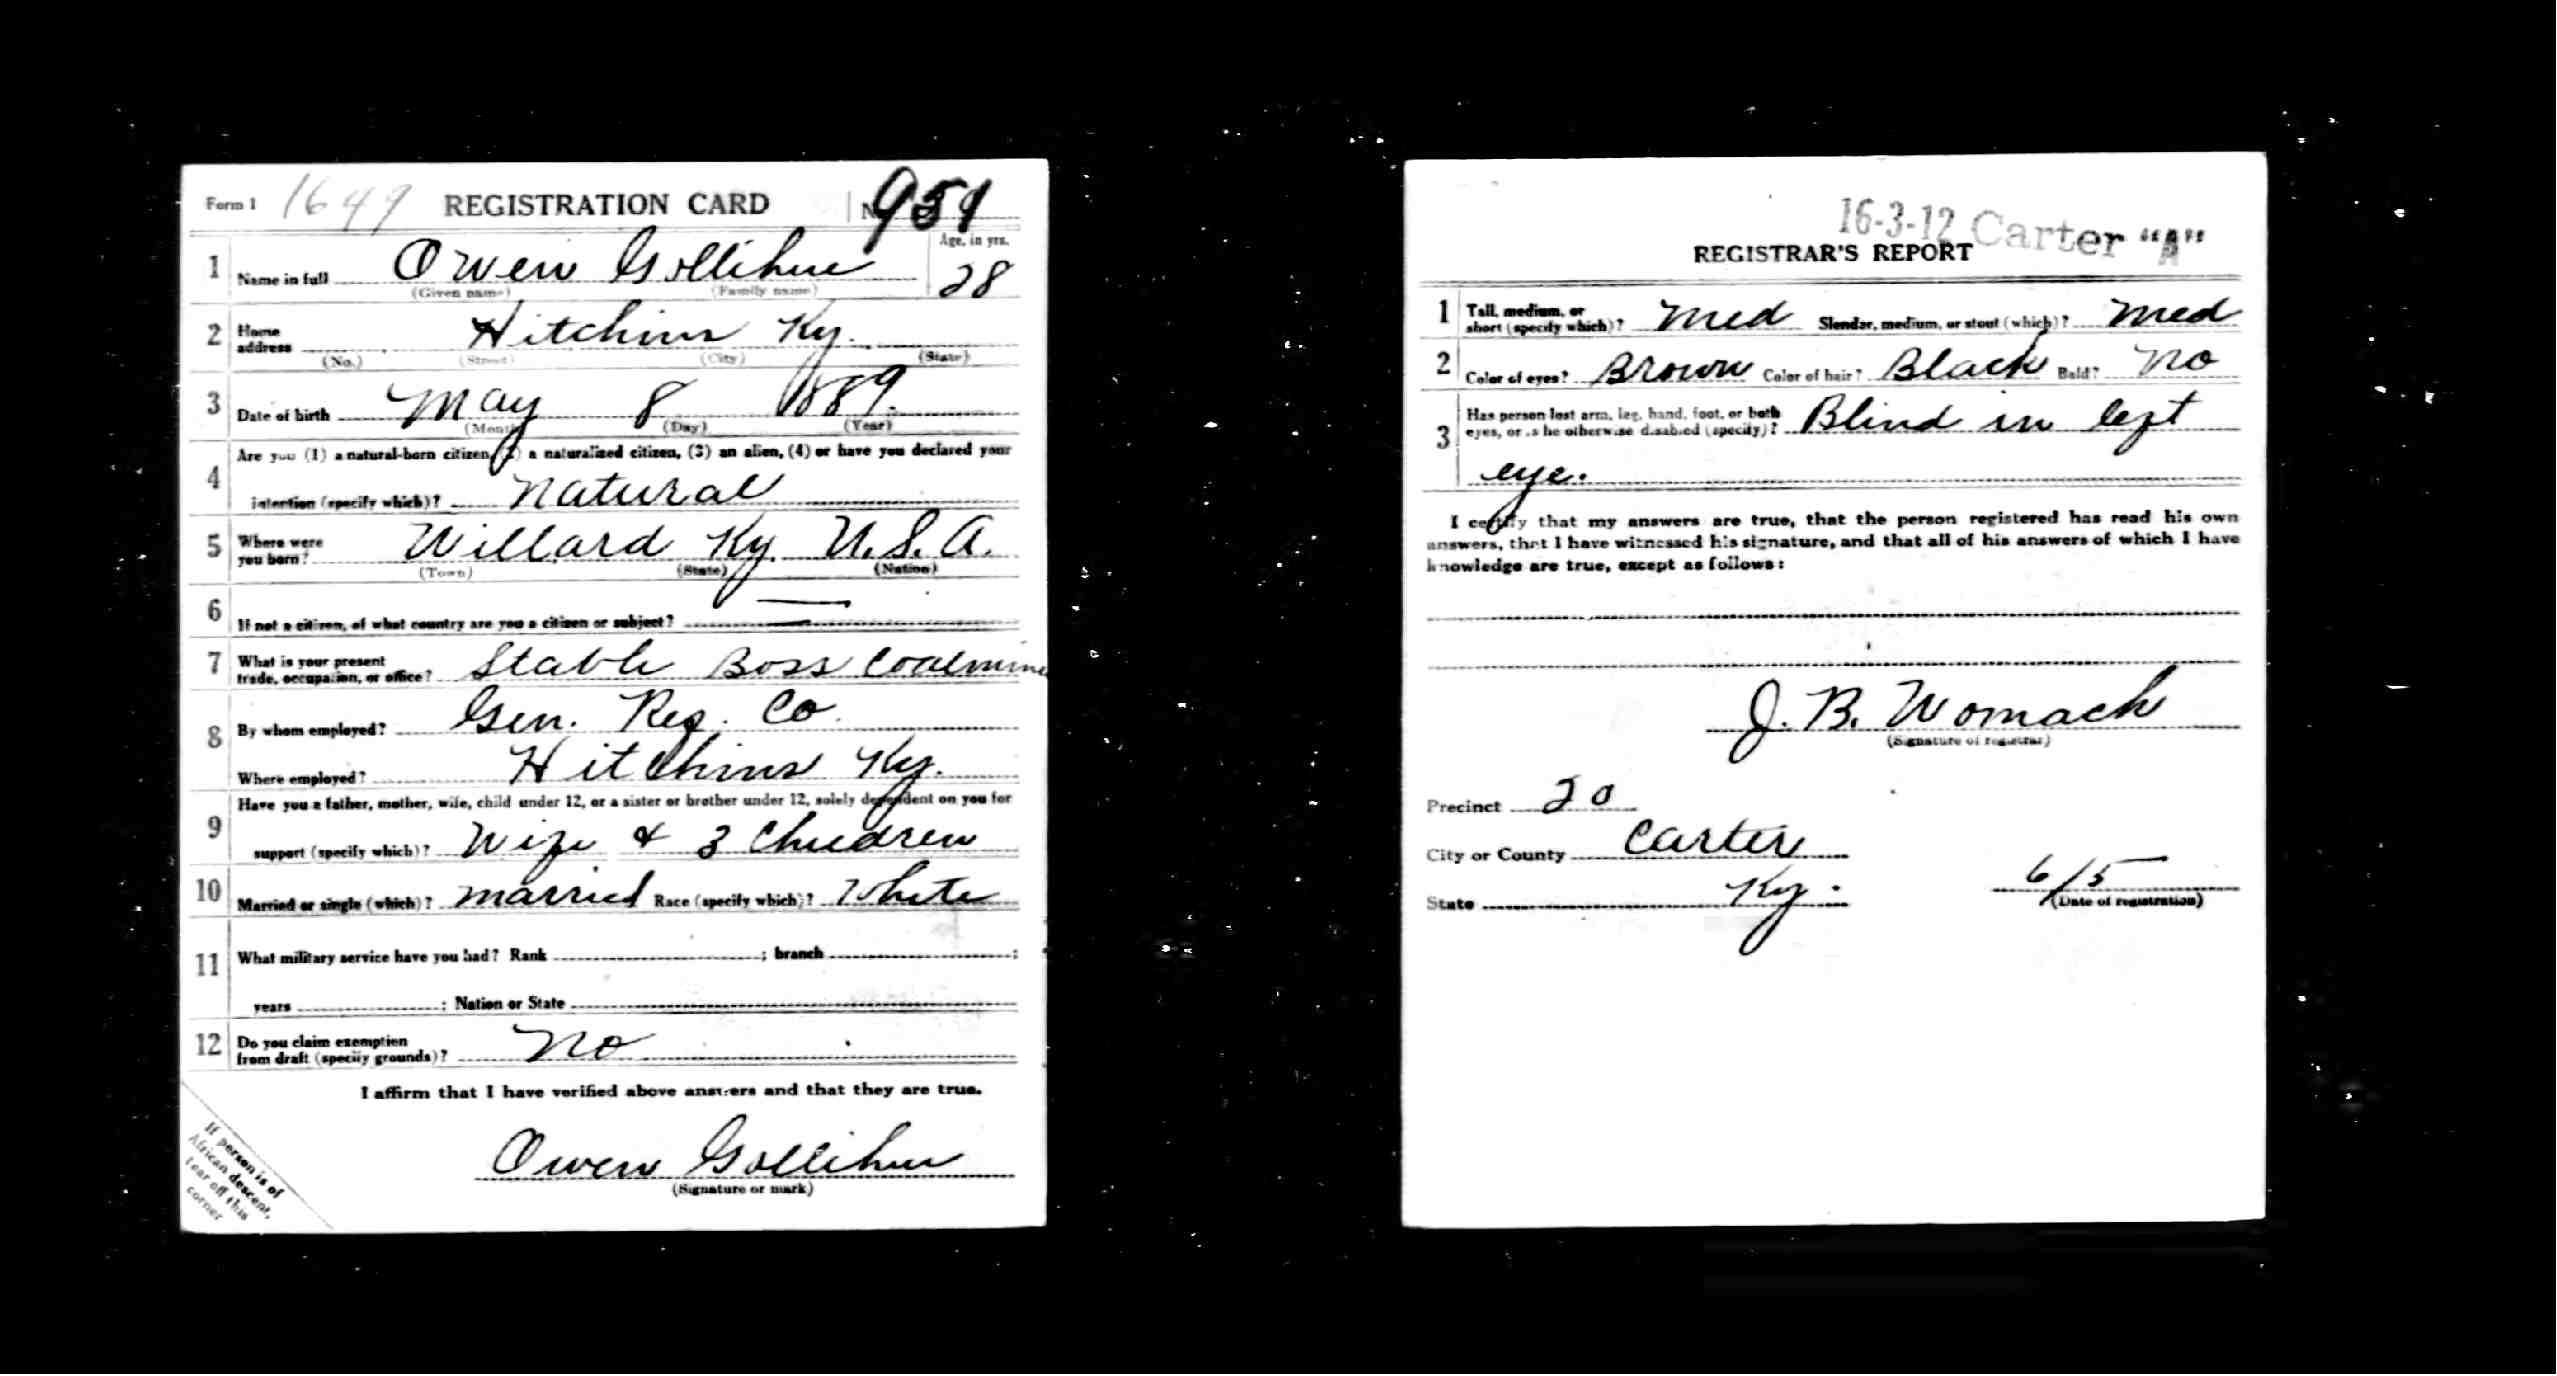 Form 1 1649 REGISTRATION CARD No 951
1 Name in full Owen Gollihue Age, in yrs. 28
(Given name) (Family name)
2 Home address Hitchins Ky.
(No.) (Street) (City) (State)
3 Date of birth May 8 1889.
(Month) (Day) (Year)
4 Are you (1) a natural-born citizen, (2) a naturalized citizen, (3) an alien, (4) or have you declared your
intention (specify which)? Natural
5 Where were you born? Willard Ky. U.S.A.
(Town) (State) (Nation)
6 If not a citizen, of what country are you a citizen or subject? —
7 What is your present trade, occupation, or office? Stable Boss Coalmine
8 By whom employed? Gen. Reg. Co.
Where employed? Hitchins Ky.
9 Have you a father, mother, wife, child under 12, or a sister or brother under 12, solely dependent on you for
support (specify which)? Wife & 3 Children
10 Married or single (which)? married Race (specify which)? White
11 What military service have you had? Rank ; branch ;
years ; Nation or State
12 Do you claim exemption from draft (specify grounds)? No
I affirm that I have verified above answers and that they are true.
Owen Gollihue
(Signature or mark)
If person is of
African descent,
tear off this
corner
16-3-12 Carter "A"
REGISTRAR'S REPORT
1 Tall, medium, or short (specify which)? Med Slender, medium, or stout (which)? Med
2 Color of eyes? Brown Color of hair? Black Bald? No
3 Has person lost arm, leg, hand, foot, or both eyes, or is he otherwise disabled (specify)? Blind in left
eye.
I certify that my answers are true, that the person registered has read his own
answers, that I have witnessed his signature, and that all of his answers of which I have
knowledge are true, except as follows:
J. B. Womack
(Signature of registrar)
Precinct 20
City or County Carter
State Ky. 6/5
(Date of registration)